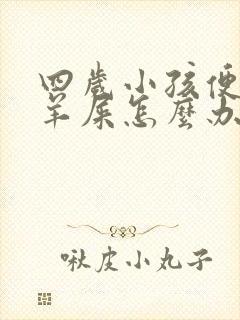 四歲小孩便
羊屎怎麼办
啾皮小丸子